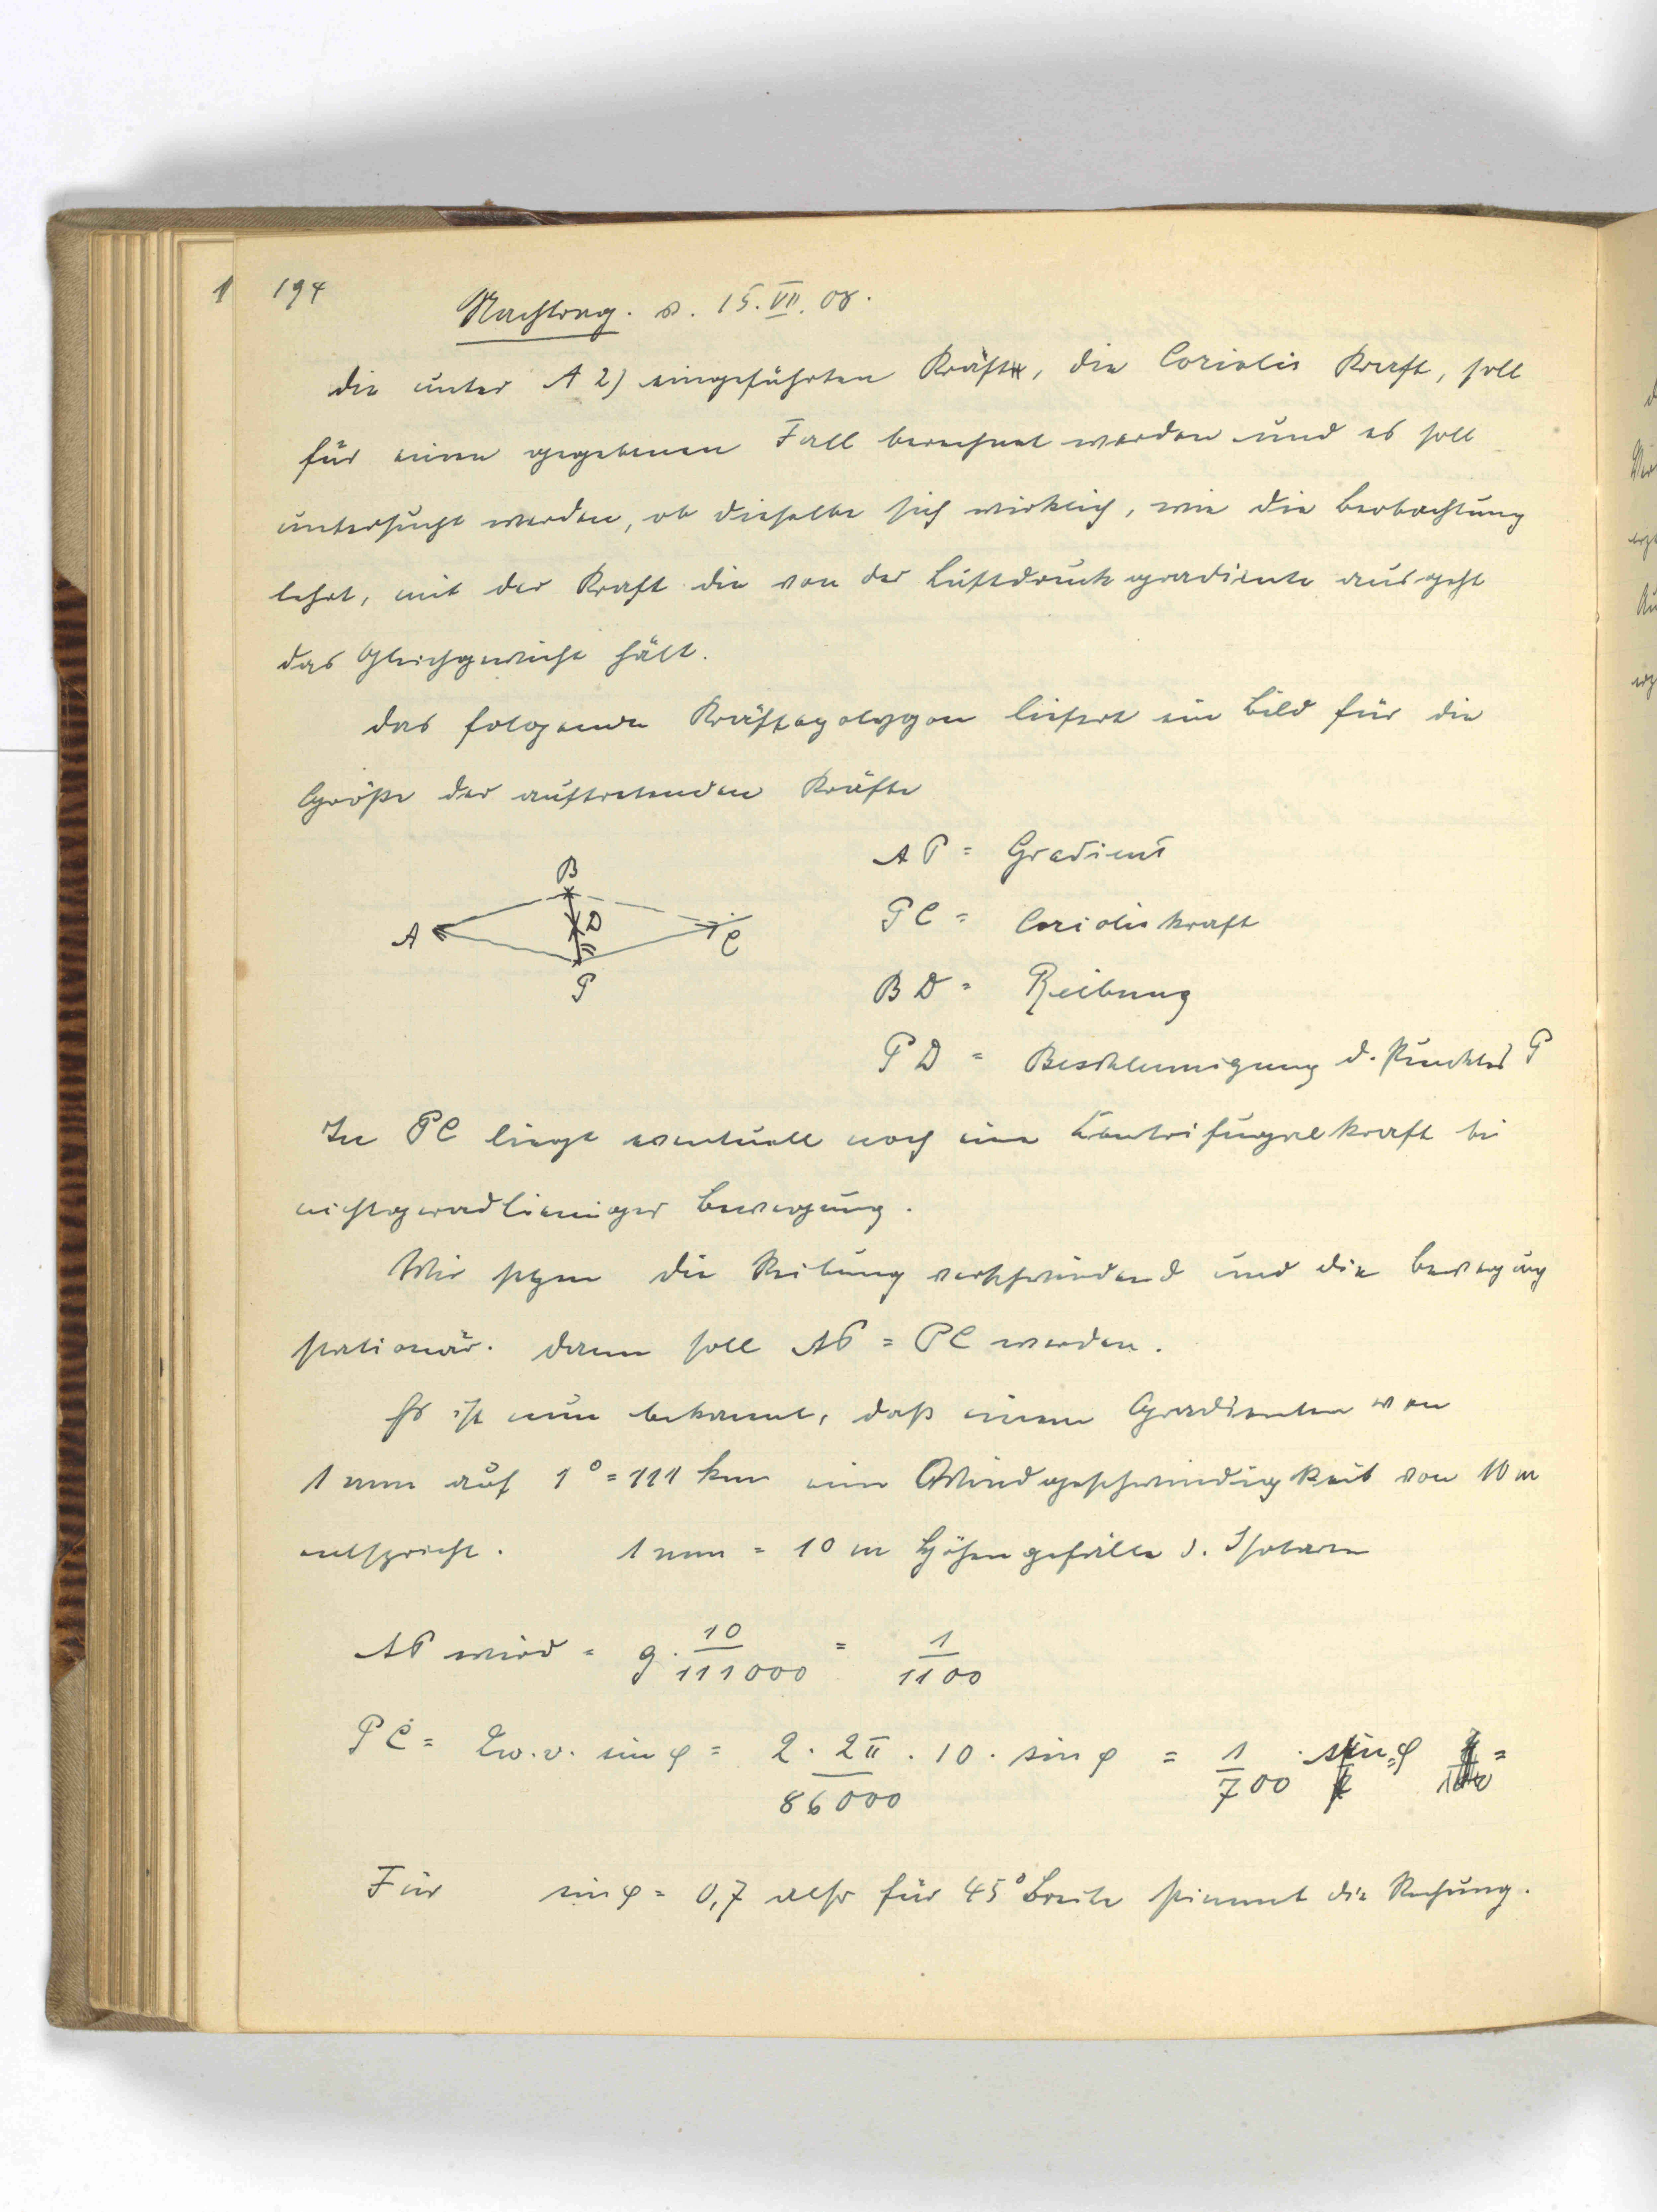 194
Nachtrag. v. 15. VII. 08.
die unter A 2) eingeführten Kräfte, die Coriolis Kraft, soll
für einen gegebenen Fall berechnet werden und es soll
untersucht werden, ob dieselbe sich wirklich, wie die Beobachtung
lehrt, mit der Kraft die von der Luftdruckgradiente ausgeht
das Gleichgewicht hält.
das folgende Kräftepolygon liefert ein Bild für die
Größe der auftretenden Kräfte
AP = Gradient
PC = Corioliskraft
BD = Reibung
PD = Beschleunigung d. Punktes P
B
D
A
C
P
In PC liegt eventuell noch eine Centrifugalkraft bei
nichtgeradlieniger Bewegung.
Wir setzen die Reibung verschwindend und die Bewegung
stationär. dann soll AP = PC werden.
Es ist nun bekannt, daß einem Gradienten von
1 mm auf 1° = 111 km eine Windgeschwindigkeit von 10 m
entspricht. 1 mm = 10 m Höhengefälle d. Isobaren
AP wird = g · 10/111000 = 1/1100
PC = 2ω.v. sin φ = 2 · 2π/86000 · 10 · sin φ = 1/700 · sin φ =
Für sin φ = 0,7 also für 45° Breite stimmt die Rechnung.